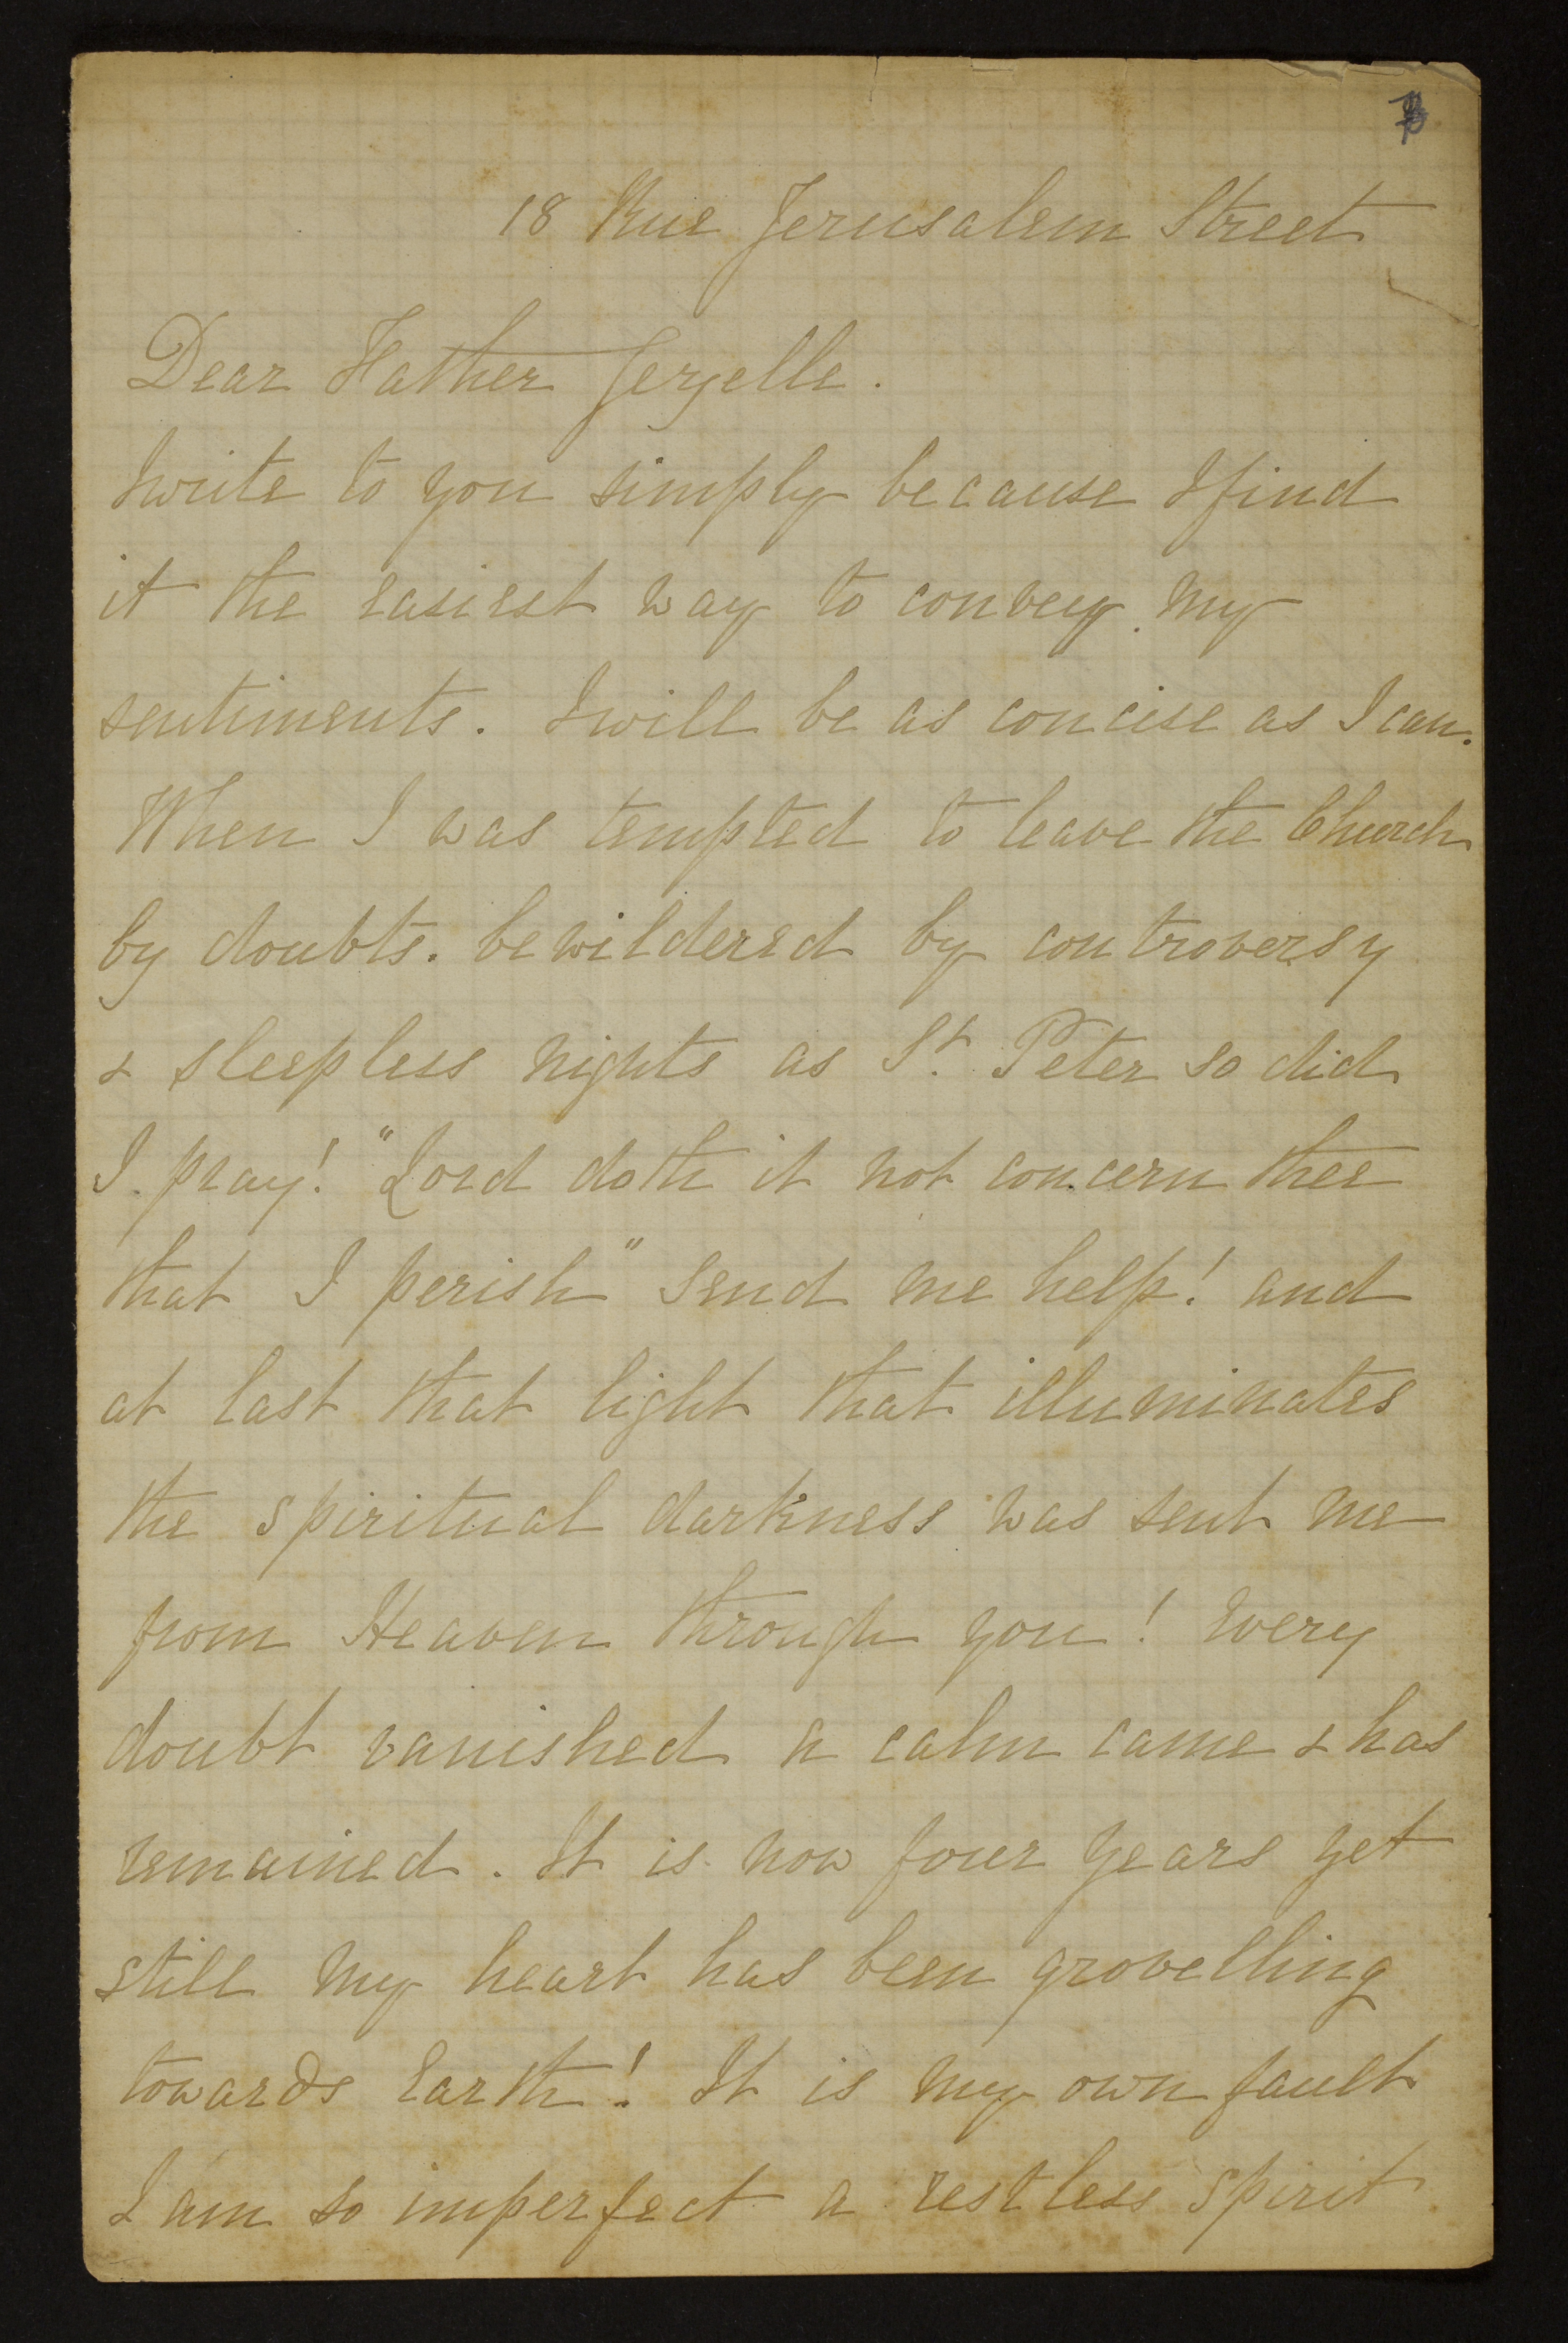 18 Rue Jerusalem Street
Dear Father Gezelle.
I write to you simply because I find
it the easiest way to convey my
sentiments. I will be as concise as I can.
When I was tempted to leave the Church
by doubts. bewildered by controversy
& sleepless nights as St. Peter so did
I pray! "Lord doth it not concern thee
that I perish" send me help! and
at last that light that illuminates
the spiritual darkness was sent me
from Heaven through you! Every
doubt vanished a calm came & has
remained. It is now four years yet
still my heart has been grovelling
towards Earth! It is my own fault
I am so imperfect a restless spirit